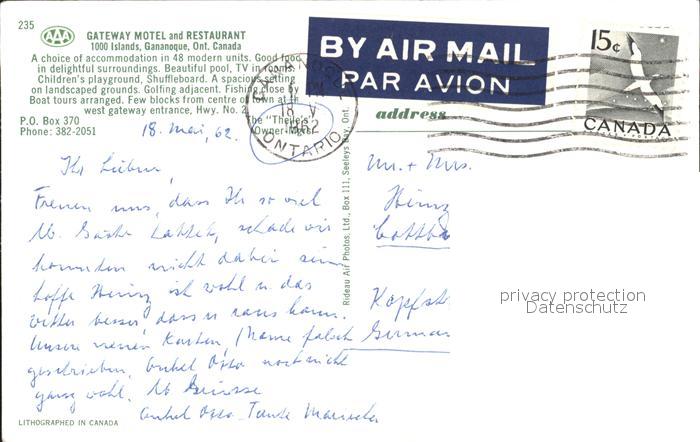 235
AAA
GATEWAY MOTEL and RESTAURANT
1000 Islands, Gananoque, Ont. Canada
A choice of accommodation in 48 modern units. Good food
in delightful surroundings. Beautiful pool, TV in room
Children's playground, Shuffleboard. A spacious setting
on landscaped grounds. Golfing adjacent. Fishing close by
Boat tours arranged. Few blocks from centre of town at
west gateway entrance, Hwy. No. 2
P.O. Box 370
Phone: 382-2051
The "Theile's"
Owner-Mgrs.
BY AIR MAIL
PAR AVION
15¢
CANADA
18 V
1962
ONTARIO
address
18. Mai, 62.
Ihr Lieben,
Freuen uns, dass Ihr so viel
lb. Gäste hattet, schade wir
konnten nicht dabei sein
hoffe Heinz ist wohl u das
Wetter besser, dass er raus kann.
Unsere neuen Karten, (Name falsch
geschrieben. Onkel Otto noch nicht
ganz wohl. lb Grüsse
Onkel Otto - Tante
Mr. + Mrs.
Heinz
German
Rideau Air Photos, Ltd., Box 111, Seeleys Bay, Ont.
privacy protection
Datenschutz
LITHOGRAPHED IN CANADA